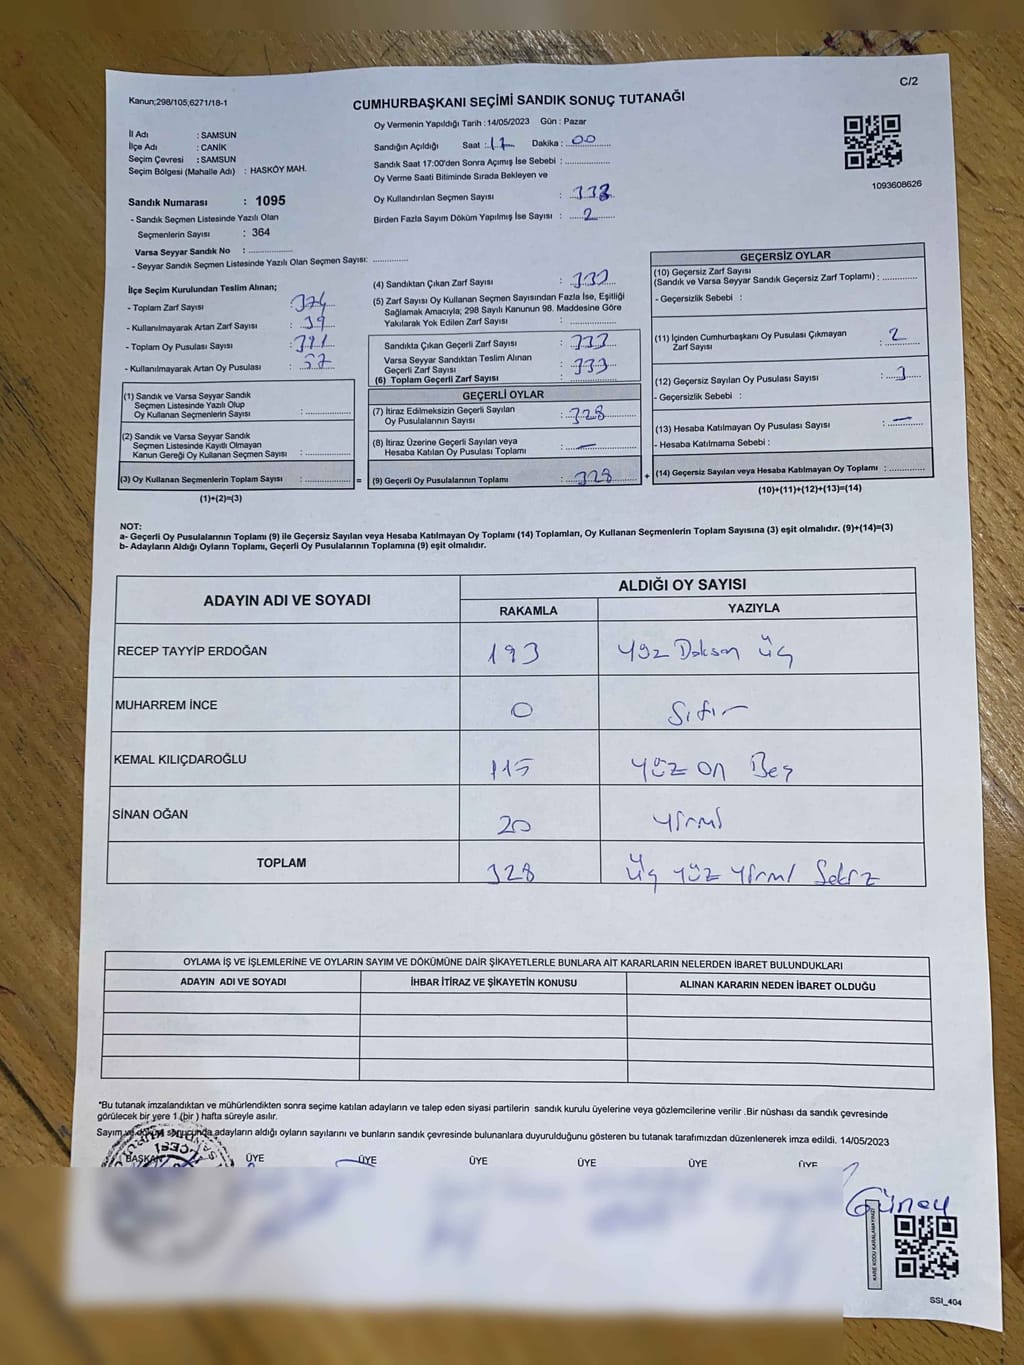 C/2
Kanun;298/105,6271/18-1
CUMHURBAŞKANI SEÇİMİ SANDIK SONUÇ TUTANAĞI
İl Adı : SAMSUN
İlçe Adı : CANİK
Seçim Çevresi : SAMSUN
Seçim Bölgesi (Mahalle Adı) : HASKÖY MAH.
Sandık Numarası : 1095
- Sandık Seçmen Listesinde Yazılı Olan
Seçmenlerin Sayısı : 364
Varsa Seyyar Sandık No :
- Seyyar Sandık Seçmen Listesinde Yazılı Olan Seçmen Sayısı:
Oy Vermenin Yapıldığı Tarih : 14/05/2023 Gün : Pazar
Sandığın Açıldığı Saat : 17 Dakika : 00
Sandık Saat 17:00'den Sonra Açımış İse Sebebi :
Oy Verme Saati Bitiminde Sırada Bekleyen ve
Oy Kullandırılan Seçmen Sayısı : 333
Birden Fazla Sayım Döküm Yapılmış İse Sayısı : 2
1093608626
İlçe Seçim Kurulundan Teslim Alınan;
- Toplam Zarf Sayısı : 374
- Kullanılmayarak Artan Zarf Sayısı : 39
- Toplam Oy Pusulası Sayısı :
- Kullanılmayarak Artan Oy Pusulası :
(1) Sandık ve Varsa Seyyar Sandık
Seçmen Listesinde Yazılı Olup
Oy Kullanan Seçmenlerin Sayısı :
(2) Sandık ve Varsa Seyyar Sandık
Seçmen Listesinde Kayıtlı Olmayan
Kanun Gereği Oy Kullanan Seçmen Sayısı :
(3) Oy Kullanan Seçmenlerin Toplam Sayısı : =
(1)+(2)=(3)
(4) Sandıktan Çıkan Zarf Sayısı : 333
(5) Zarf Sayısı Oy Kullanan Seçmen Sayısından Fazla İse, Eşitliği
Sağlamak Amacıyla; 298 Sayılı Kanunun 98. Maddesine Göre
Yakılarak Yok Edilen Zarf Sayısı :
Sandıkta Çıkan Geçerli Zarf Sayısı : 333
Varsa Seyyar Sandıktan Teslim Alınan
Geçerli Zarf Sayısı : 333
(6) Toplam Geçerli Zarf Sayısı :
GEÇERLİ OYLAR
(7) İtiraz Edilmeksizin Geçerli Sayılan
Oy Pusulalarının Sayısı : 328
(8) İtiraz Üzerine Geçerli Sayılan veya
Hesaba Katılan Oy Pusulası Toplamı : —
(9) Geçerli Oy Pusulalarının Toplamı : 328 +
GEÇERSİZ OYLAR
(10) Geçersiz Zarf Sayısı
(Sandık ve Varsa Seyyar Sandık Geçersiz Zarf Toplamı) :
- Geçersizlik Sebebi :
(11) İçinden Cumhurbaşkanı Oy Pusulası Çıkmayan
Zarf Sayısı : 2
(12) Geçersiz Sayılan Oy Pusulası Sayısı : 3
- Geçersizlik Sebebi :
(13) Hesaba Katılmayan Oy Pusulası Sayısı : —
- Hesaba Katılmama Sebebi :
(14) Geçersiz Sayılan veya Hesaba Katılmayan Oy Toplamı :
(10)+(11)+(12)+(13)=(14)
NOT:
a- Geçerli Oy Pusulalarının Toplamı (9) ile Geçersiz Sayılan veya Hesaba Katılmayan Oy Toplamı (14) Toplamları, Oy Kullanan Seçmenlerin Toplam Sayısına (3) eşit olmalıdır. (9)+(14)=(3)
b- Adayların Aldığı Oyların Toplamı, Geçerli Oy Pusulalarının Toplamına (9) eşit olmalıdır.
ADAYIN ADI VE SOYADI ALDIĞI OY SAYISI
RAKAMLA YAZIYLA
RECEP TAYYİP ERDOĞAN 193 Yüz Doksan Üç
MUHARREM İNCE 0 Sıfır
KEMAL KILIÇDAROĞLU 115 Yüz on Beş
SİNAN OĞAN 20 Yirmi
TOPLAM 328 Üç yüz yirmi Sekiz
OYLAMA İŞ VE İŞLEMLERİNE VE OYLARIN SAYIM VE DÖKÜMÜNE DAİR ŞİKAYETLERLE BUNLARA AİT KARARLARIN NELERDEN İBARET BULUNDUKLARI
ADAYIN ADI VE SOYADI İHBAR İTİRAZ VE ŞİKAYETİN KONUSU ALINAN KARARIN NEDEN İBARET OLDUĞU
*Bu tutanak imzalandıktan ve mühürlendikten sonra seçime katılan adayların ve talep eden siyasi partilerin sandık kurulu üyelerine veya gözlemcilerine verilir .Bir nüshası da sandık çevresinde
görülecek bir yere 1 (bir ) hafta süreyle asılır.
Sayım ve döküm sonucunda adayların aldığı oyların sayılarını ve bunların sandık çevresinde bulunanlara duyurulduğunu gösteren bu tutanak tarafımızdan düzenlenerek imza edildi. 14/05/2023
BAŞKAN ÜYE ÜYE ÜYE ÜYE ÜYE
Güney
KARE KODU KARALAMAYINIZ!
SSI_404